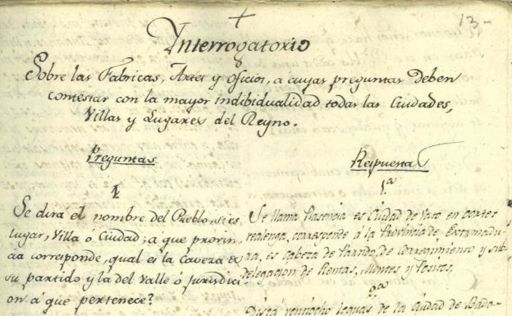 13-
Interrogatorio
Sobre las Fabricas, Artes y oficios, a cuyas preguntas deben
contestar con la mayor indibidualidad todas las Ciudades,
Villas y Lugares del Reyno.
Preguntas
1.
Se dirá el nombre del Pueblo, si es
lugar, Villa ó Ciudad; a que provin-
cia corresponde, qual es la Caveza de
su partido y la del Valle ó jurisdici-
on á que pertenece?
Respuesta
1.ª
Se llama Plasencia es Ciudad de Voto en cortes
realenga, corresponde á la Provincia de Extremadu-
ra, es Cabeza de Partido, de Correximiento y sub-
delegacion de Rentas, Montes y Postes,
2.ª
Dista veinte ocho leguas de la Ciudad de Bada-